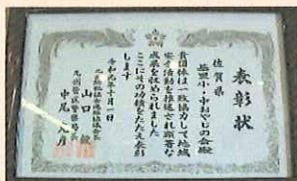 表彰状
佐賀県
基里小・中おやじの会殿
貴団体は一致協力して地域
安全活動を推進され顕著な
成果を収められました
ここにその功績をたたえ表彰
します
令和元年十月一日
九州防犯協会連絡協議会長
山口
九州管区警察局長
中尾